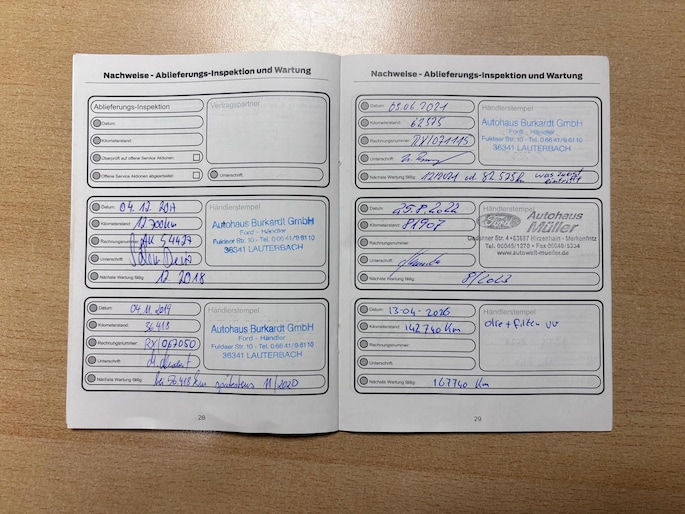 Nachweise - Ablieferungs-Inspektion und Wartung
Ablieferungs-Inspektion
Vertragspartner
Datum:
Kilometerstand:
Überprüft auf offene Service Aktionen:
Offene Service Aktionen abgearbeitet:
Unterschrift:
Datum: 04.12.2017
Händlerstempel
Kilometerstand: 12.700km
Rechnungsnummer: 54427
Unterschrift:
Nächste Wartung fällig: 12.2018
Autohaus Burkardt GmbH
Ford - Händler
Fuldaer Str. 10 - Tel. 0 66 41/9 61 10
36341 LAUTERBACH
Datum: 04.11.2019
Händlerstempel
Kilometerstand: 36.418
Rechnungsnummer: RX/067050
Unterschrift:
Nächste Wartung fällig: bei 56418km spätestens 11/2020
Autohaus Burkardt GmbH
Ford - Händler
Fuldaer Str. 10 - Tel. 0 66 41/9 61 10
36341 LAUTERBACH
28
Nachweise - Ablieferungs-Inspektion und Wartung
Datum: 05.06.2021
Händlerstempel
Kilometerstand: 62575
Rechnungsnummer: RX/071115
Unterschrift:
Nächste Wartung fällig: 12/2021 od. 82.575km was zuerst eintrifft
Autohaus Burkardt GmbH
Ford - Händler
Fuldaer Str. 10 - Tel. 0 66 41/9 61 10
36341 LAUTERBACH
Datum: 25.8.2022
Händlerstempel
Kilometerstand: 81907
Rechnungsnummer:
Unterschrift:
Nächste Wartung fällig: 8/2023
Ford Autohaus
Müller
Str. 4 • 63697 Hirzenhain - Merkenfritz
Tel. 06045/1270 • Fax 06045/5334
www.autowelt-mueller.de
Datum: 13-04-2026
Händlerstempel
Kilometerstand: 142740 Km
olie + filter vv
Rechnungsnummer:
Unterschrift:
Nächste Wartung fällig: 167740 Km
29